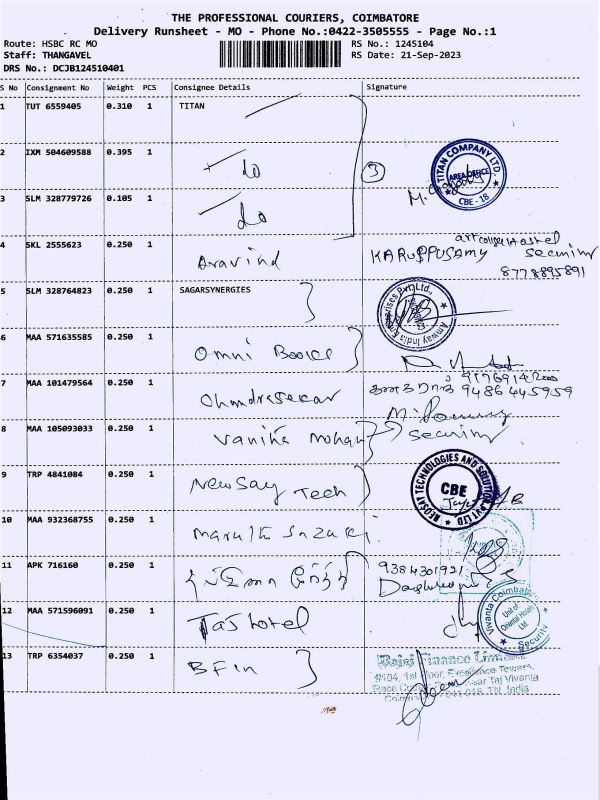 THE PROFESSIONAL COURIERS, COIMBATORE
Delivery Runsheet - MO - Phone No.:0422-3505555 - Page No.:1
Route: HSBC RC MO
RS No.: 1245104
Staff: THANGAVEL
RS Date: 21-Sep-2023
DRS No.: DCJB124510401
S No Consignment No Weight PCS Consignee Details Signature
1 TUT 6559405 0.310 1 TITAN
2 IXM 504609588 0.395 1 do 3
TITAN COMPANY LTD.
AREA OFFICE
CBE - 18
3 SLM 328779726 0.105 1 do
4 SKL 2555623 0.250 1 Aravind
KARUPPUSAMY security
8778895891
5 SLM 328764823 0.250 1 SAGARSYNERGIES
6 MAA 571635585 0.250 1 Omni
7 MAA 101479564 0.250 1 Chandrasekar
9486445959
8 MAA 105093033 0.250 1 Vanitha Mohan
security
9 TRP 4841084 0.250 1 Tech
CBE
10 MAA 932368755 0.250 1 Maruti Suzuki
11 APK 716160 0.250 1
9384301921
12 MAA 571596091 0.250 1 Taj hotel
Vivanta Coimbatore
Unit of
Oriental Hotels
Ltd.
Security
13 TRP 6354037 0.250 1 BFin
Bajaj Finance Limited